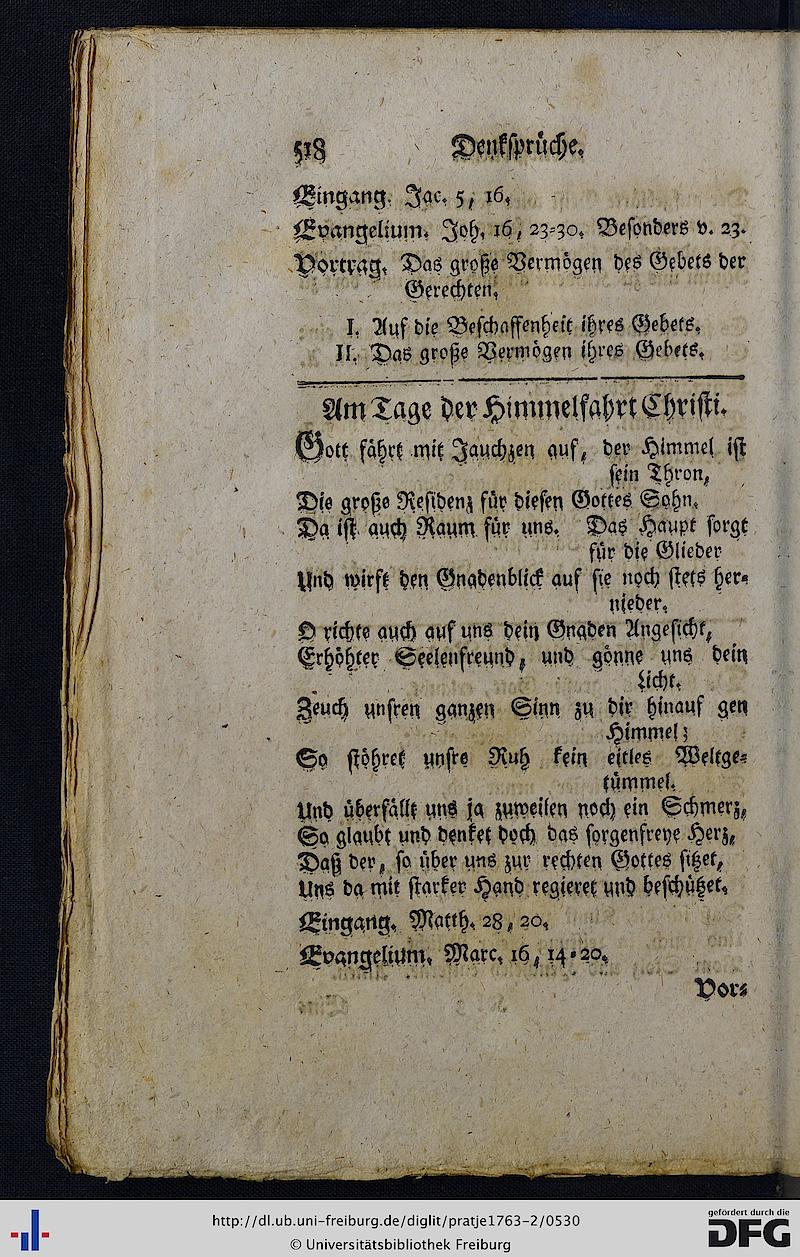 518 Denksprüche.
Eingang. Jac. 5, 16.
Evangelium. Joh. 16, 23-30. Besonders v. 23.
Vortrag. Das große Vermögen des Gebets der
Gerechten.
I. Auf die Beschaffenheit ihres Gebets.
II. Das große Vermögen ihres Gebets.
Am Tage der Himmelfahrt Christi.
Gott fährt mit Jauchzen auf, der Himmel ist
sein Thron,
Die große Residenz für diesen Gottes Sohn.
Da ist auch Raum für uns. Das Haupt sorgt
für die Glieder
Und wirft den Gnadenblick auf sie noch stets her-
nieder.
O richte auch auf uns dein Gnaden Angesicht,
Erhöhter Seelenfreund, und gönne uns dein
Licht.
Zeuch unsren ganzen Sinn zu dir hinauf gen
Himmel;
So stöhret unsre Ruh kein eitles Weltge-
tümmel.
Und überfällt uns ja zuweilen noch ein Schmerz,
So glaubt und denket doch das sorgenfreye Herz,
Daß der, so über uns zur rechten Gottes sitzet,
Uns da mit starker Hand regieret und beschützet.
Eingang. Matth. 28, 20.
Evangelium. Marc. 16, 14-20.
Vor-
http://dl.ub.uni-freiburg.de/diglit/pratje1763-2/0530
© Universitätsbibliothek Freiburg
gefördert durch die
DFG